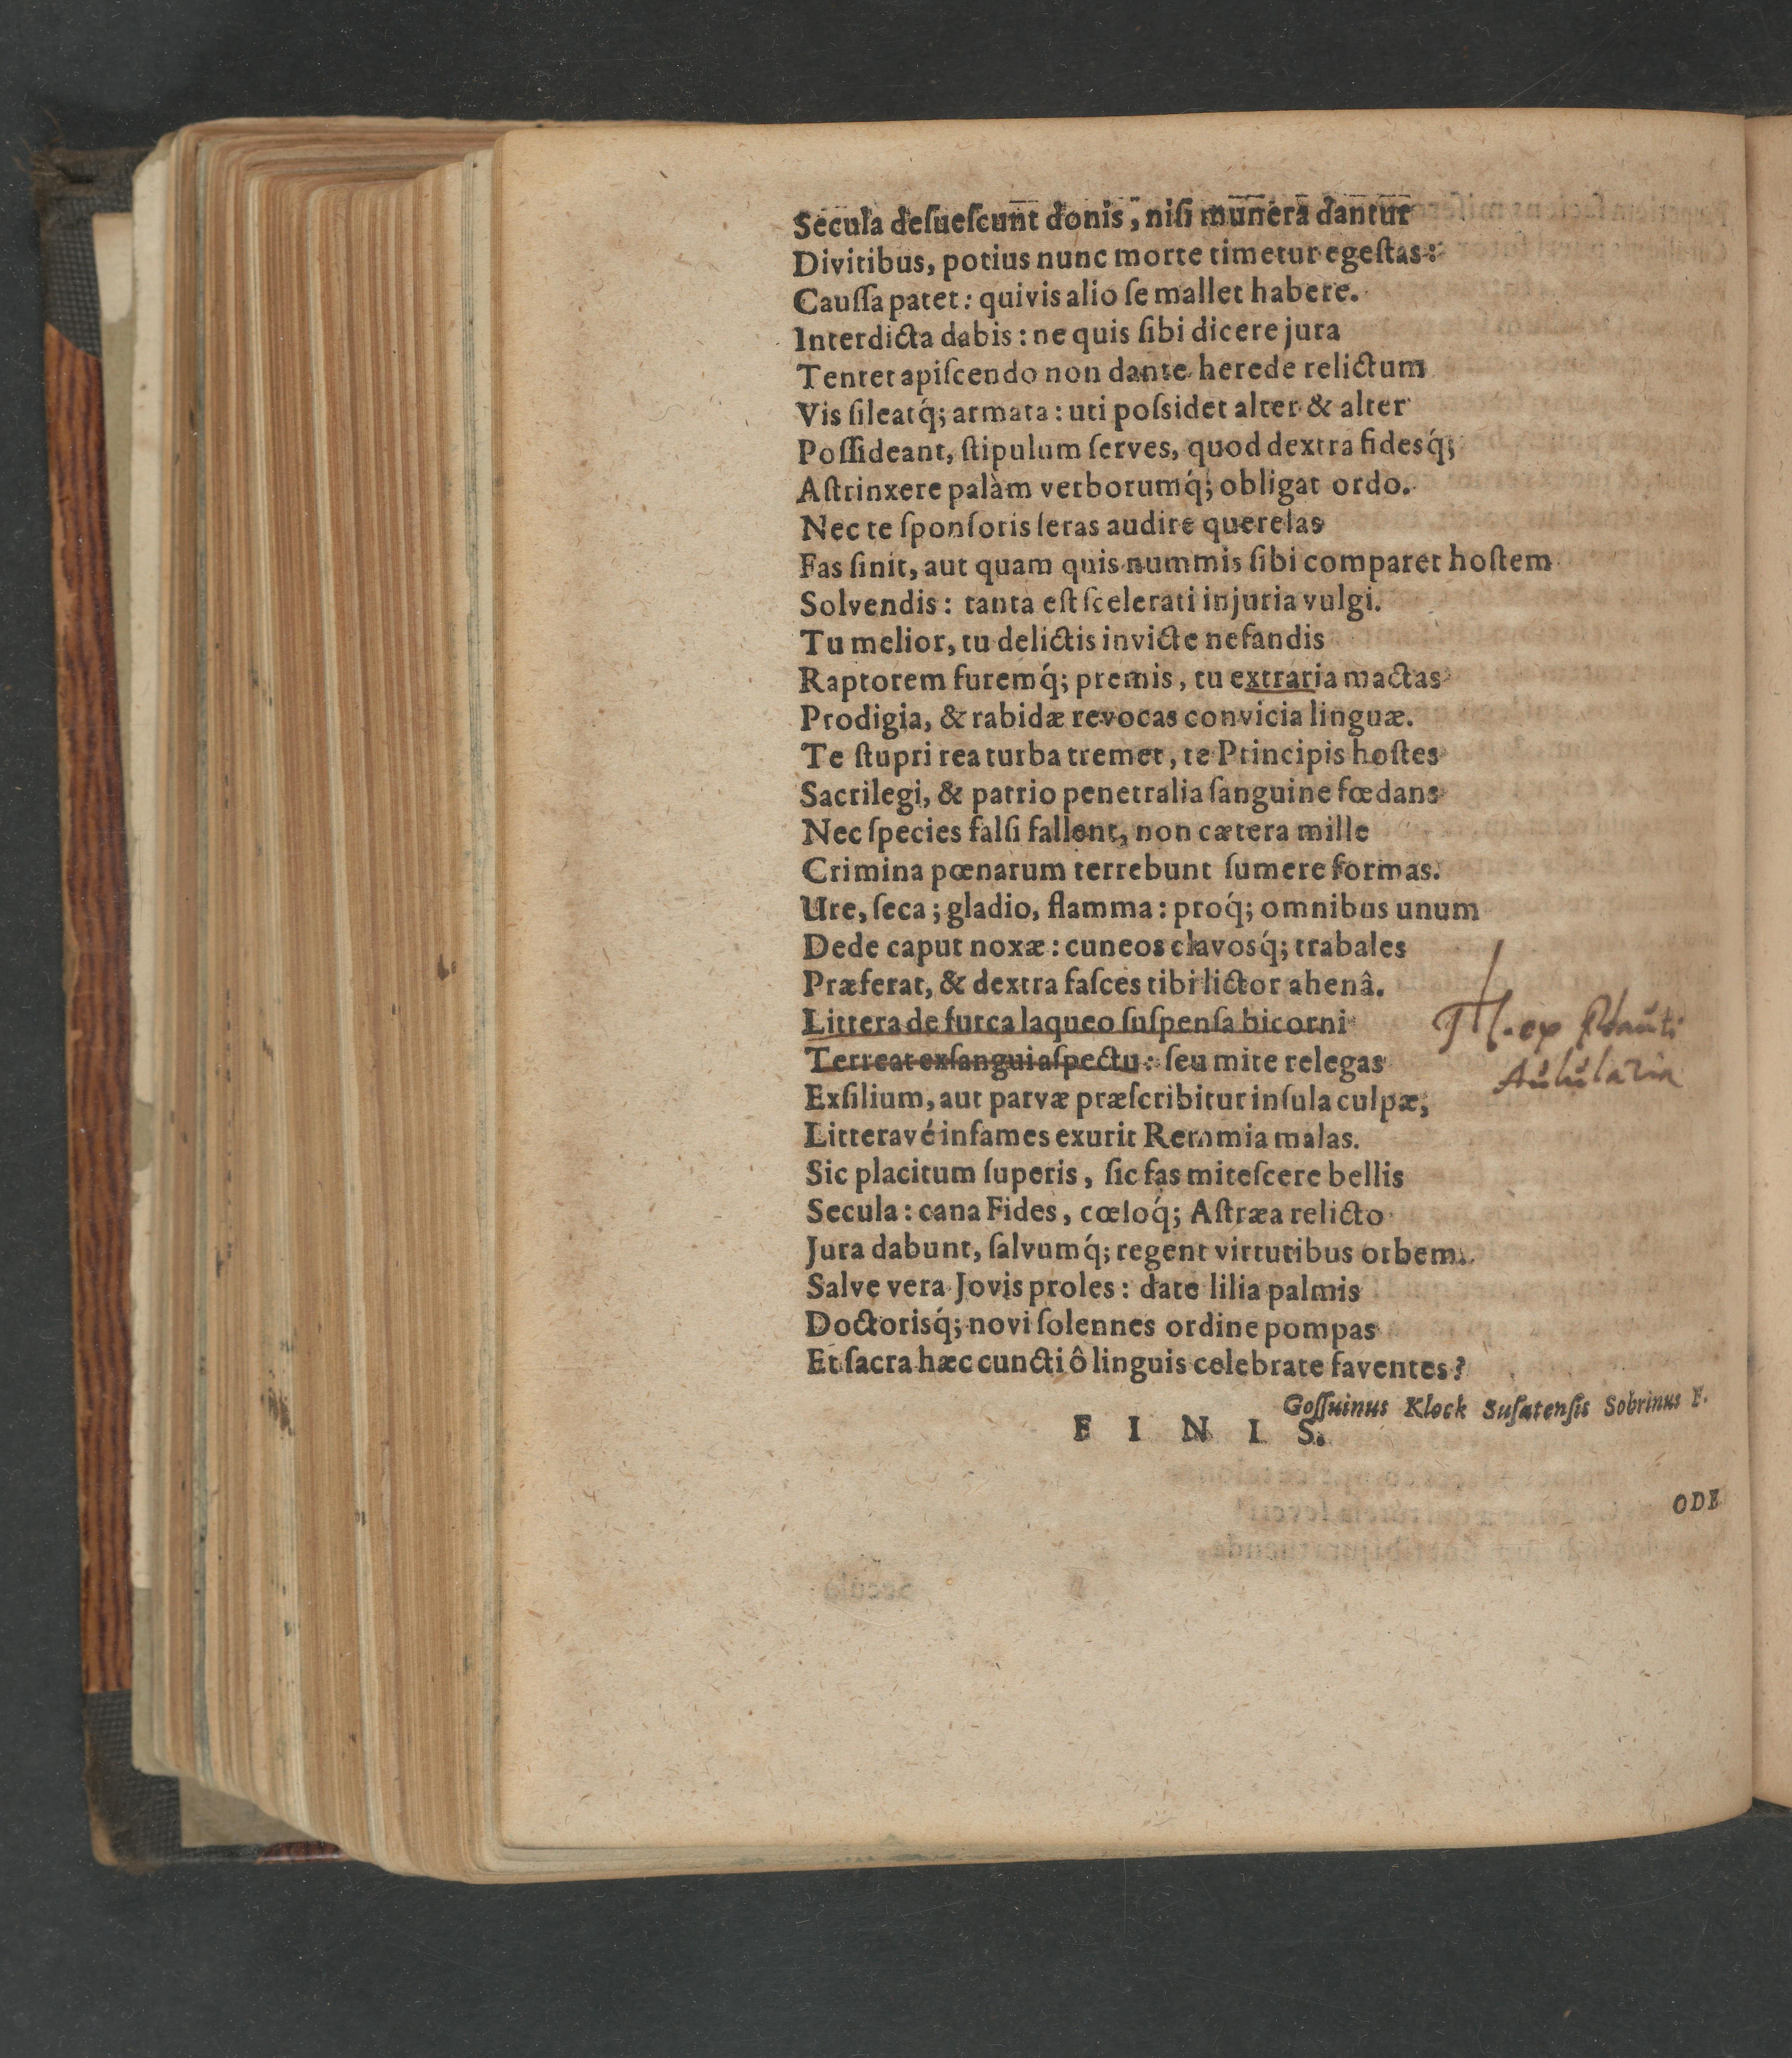 Secula desuescunt donis, nisi munera dantur
Divitibus, potius nunc morte timetur egestas:
Caussa patet: quivis alio se mallet habere.
Interdicta dabis: ne quis sibi dicere jura
Tentet apiscendo non dante herede relictum
Vis sileatq́; armata: uti possidet alter & alter
Possideant, stipulum serves, quod dextra fidesq́;
Astrinxere palàm verborumq́; obligat ordo.
Nec te sponsoris seras audire querelas
Fas sinit, aut quam quis nummis sibi comparet hostem
Solvendis: tanta est scelerati injuria vulgi.
Tu melior, tu delictis invicte nefandis
Raptorem furemq́; premis, tu extraria mactas
Prodigia, & rabidæ revocas convicia linguæ.
Te stupri rea turba tremet, te Principis hostes
Sacrilegi, & patrio penetralia sanguine fœdans
Nec species falsi fallent, non cætera mille
Crimina pœnarum terrebunt sumere formas.
Ure, seca; gladio, flamma: proq́; omnibus unum
Dede caput noxæ: cuneos clavosq́; trabales
Præferat, & dextra fasces tibi lictor ahenâ.
Littera de furca laqueo suspensa bicorni
Terreat exsangui aspectu: seu mite relegas
Exsilium, aut parvæ præscribitur insula culpæ,
Litteravé infames exurit Remmia malas.
Sic placitum superis, sic fas mitescere bellis
Secula: cana Fides, cœloq́; Astræa relicto
Jura dabunt, salvumq́; regent virtutibus orbem.
Salve vera Jovis proles: date lilia palmis
Doctorisq́; novi solennes ordine pompas
Et sacra hæc cuncti ô linguis celebrate faventes?
Gossuinus Klock Susatensis Sobrinus F.
F I N I S.
ODE
ex Plauti
Aulularia